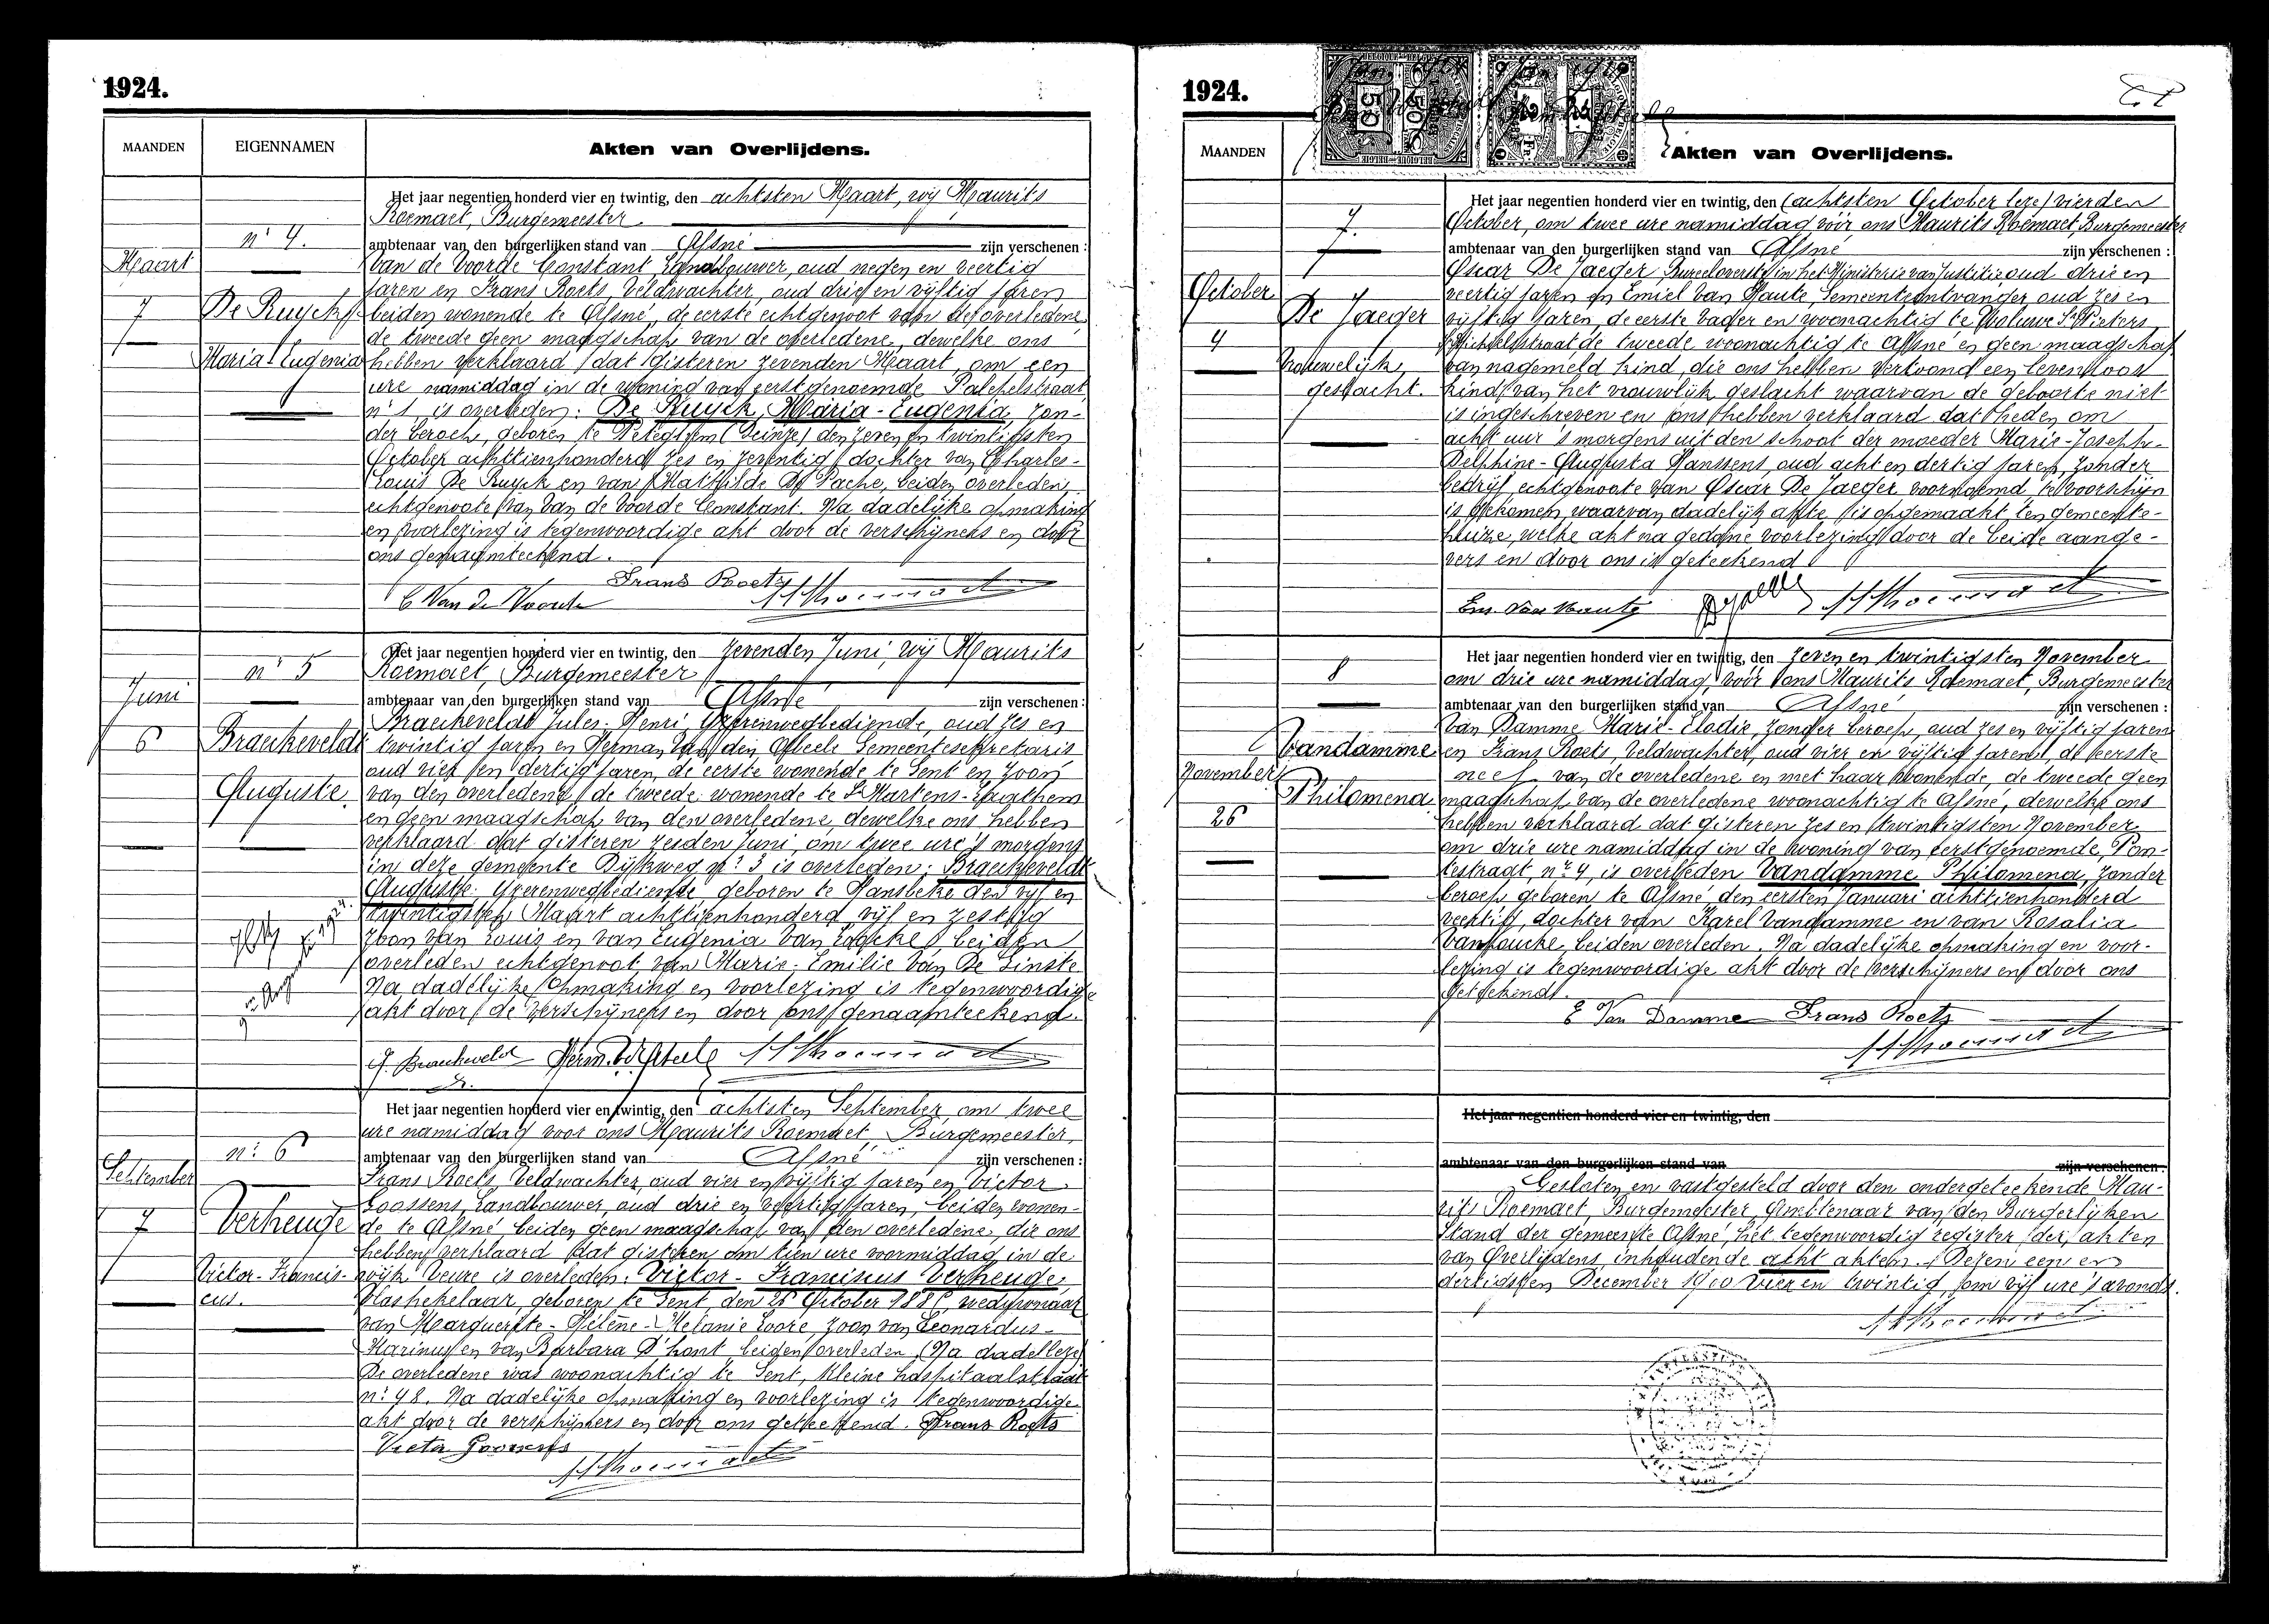 1924.
MAANDEN
EIGENNAMEN
Akten van Overlijdens.
n: 4.
Maart
7
De Ruyck
Maria-Eugenia
Het jaar negentien honderd vier en twintig, den achtsten Maart, wij Maurits
Roemaet, Burgemeester
ambtenaar van den burgerlijken stand van Afsné zijn verschenen :
Van de Voorde Constant, Landbouwer, oud negen en veertig
jaren en Frans Roets, Veldwachter, oud drie en vijftig jaren
beiden wonende te Afsné, de eerste echtgenoot van de overledene,
de tweede geen maagschap van de overledene, dewelke ons
hebben verklaard dat gisteren zevenden Maart, om een
ure namiddag in de woning van eerstgenoemde
n: 1, is overleden: De Ruyck, Maria-Eugenia, zon-
der beroep, geboren te Peteghem (Deinze) den zeven en twintigsten
October achttienhonderd zes en zeventig, dochter van Charles-
Louis De Ruyck en van Mathilde De Pache, beiden overleden,
echtgenoote van Van de Voorde Constant. Na dadelijke opmaking
en voorlezing is tegenwoordige akt door de verschijners en door
ons genaamteekend.
C Van de Voorde Frans Roets MRoemaet
n: 5
Juni
6
Braeckeveldt
Auguste.
9en Augusti 1924.
Het jaar negentien honderd vier en twintig, den zevenden Juni, wij Maurits
Roemaet, Burgemeester
ambtenaar van den burgerlijken stand van Afsné zijn verschenen :
Braeckeveldt Jules-Henri Yzerenwegbediende, oud zes en
twintig jaren en Herman Van den Abeele Gemeentesekretaris
oud vier en dertig jaren, de eerste wonende te Gent en zoon
van den overledene, de tweede wonende te St Martens-Laathem
en geen maagschap van den overledene, dewelke ons hebben
verklaard dat gisteren zesden Juni, om twee ure 's morgens
in deze gemeente Dijkweg n: 3 is overleden: Braeckeveldt
Auguste. Yzerenwegbediende, geboren te Hansbeke den vijf en
twintigsten Maart achttienhonderd vijf en zestig
zoon van Louis en van Eugenia Van Loocke, beiden
overleden echtgenoot van Marie-Emilie Van De Ginste
Na dadelijke opmaking en voorlezing is tegenwoordige
akt door de verschijners en door ons genaamteekend.
J. Braeckeveld Herm. V.d. Abeele MRoemaet
n: 6
September
7
Verheuge
Victor-Francis-
cus.
Het jaar negentien honderd vier en twintig, den achtsten September, om twee
ure namiddag voor ons Maurits Roemaet, Burgemeester,
ambtenaar van den burgerlijken stand van Afsné zijn verschenen :
Frans Roets, Veldwachter, oud vier en vijftig jaren en Victor
Goossens, Landbouwer, oud drie en veertig jaren, beiden wonen-
de te Afsné beiden geen maagschap van den overledene, die ons
hebben verklaard dat gisteren om tien ure voormiddag in de
wijk Veure is overleden: Victor-Franciscus Verheuge,
Vlashekelaar, geboren te Gent, den 26 October 1886, weduwnaar
van Marguerite-Hélène-Melanie Loore, zoon van Leonardus-
Marinus en van Barbara D'hont beiden overleden. (Na dadel leze)
De overledene was woonachtig te Gent, Kleine hospitaalstraat
n: 48. Na dadelijke opmaking en voorlezing is tegenwoordige
akt door de verschijners en door ons geteekend. Frans Roets
Victor Goossens
MRoemaet
1924.
MAANDEN
Akten van Overlijdens.
7.
October
4
De Jaeger
Vrouwelijk
geslacht.
Het jaar negentien honderd vier en twintig, den (achtsten October leze) vierden
October, om twee ure namiddag, vóór ons Maurits Roemaet, Burgemeester
ambtenaar van den burgerlijken stand van Afsné zijn verschenen :
Oscar De Jaeger, Bureeloverste in het Ministerie van Justitie, oud drie en
veertig jaren en Emiel Van Haute, Gemeenteontvanger oud zes en
vijftig jaren, de eerste vader en woonachtig te Woluwe St Pieters
de tweede woonachtig te Afsné en geen maagschap
van nagemeld kind, die ons hebben vertoond een levenloos
kind van het vrouwlijk geslacht waarvan de geboorte niet
is ingeschreven en ons hebben verklaard dat heden om
acht uur 's morgens uit den schoot der moeder Marie-Joseph-
Delphine-Augusta Hanssens, oud acht en dertig jaren, zonder
bedrijf echtgenoote van Oscar De Jaeger, voornoemd, te voorschijn
is gekomen, waarvan dadelijk akte is opgemaakt ten gemeente-
huize, welke akt na gedane voorlezing door de beide aange-
vers en door ons is geteekend
Em. Van Haute DeJaeger MRoemaet
8
Vandamme
November
Philomena
26
Het jaar negentien honderd vier en twintig, den zeven en twintigsten November
om drie ure namiddag, vóór ons Maurits Roemaet, Burgemeester
ambtenaar van den burgerlijken stand van Afsné zijn verschenen :
Van Damme Marie-Elodie, zonder beroep, oud zes en vijftig jaren
en Frans Roets, Veldwachter, oud vier en vijftig jaren, de eerste
neef van de overledene en met haar wonende, de tweede geen
maagschap van de overledene woonachtig te Afsné, dewelke ons
hebben verklaard dat gisteren zes en twintigsten November
om drie ure namiddag in de woning van eerstgenoemde, Pon-
testraat, nr 4, is overleden Vandamme Philomena, zonder
beroep, geboren te Afsné, den eersten Januari achttienhonderd
veertig, dochter van Karel Vandamme en van Rosalia
Vanhoucke, beiden overleden. Na dadelijke opmaking en voor-
lezing is tegenwoordige akt door de verschijners en door ons
geteekend.
E Van Damme Frans Roets
MRoemaet
Het jaar negentien honderd vier en twintig, den
ambtenaar van den burgerlijken stand van zijn verschenen :
Gesloten en vastgesteld door den ondergeteekende Mau-
rits Roemaet, Burgemeester, Ambtenaar van den Burgerlijken
Stand der gemeente Afsné, het tegenwoordig register der akten
van Overlijdens, inhoudende acht akten. Dezen een en
dertigsten December 1900 vier en twintig, om vijf ure 's avonds.
MRoemaet